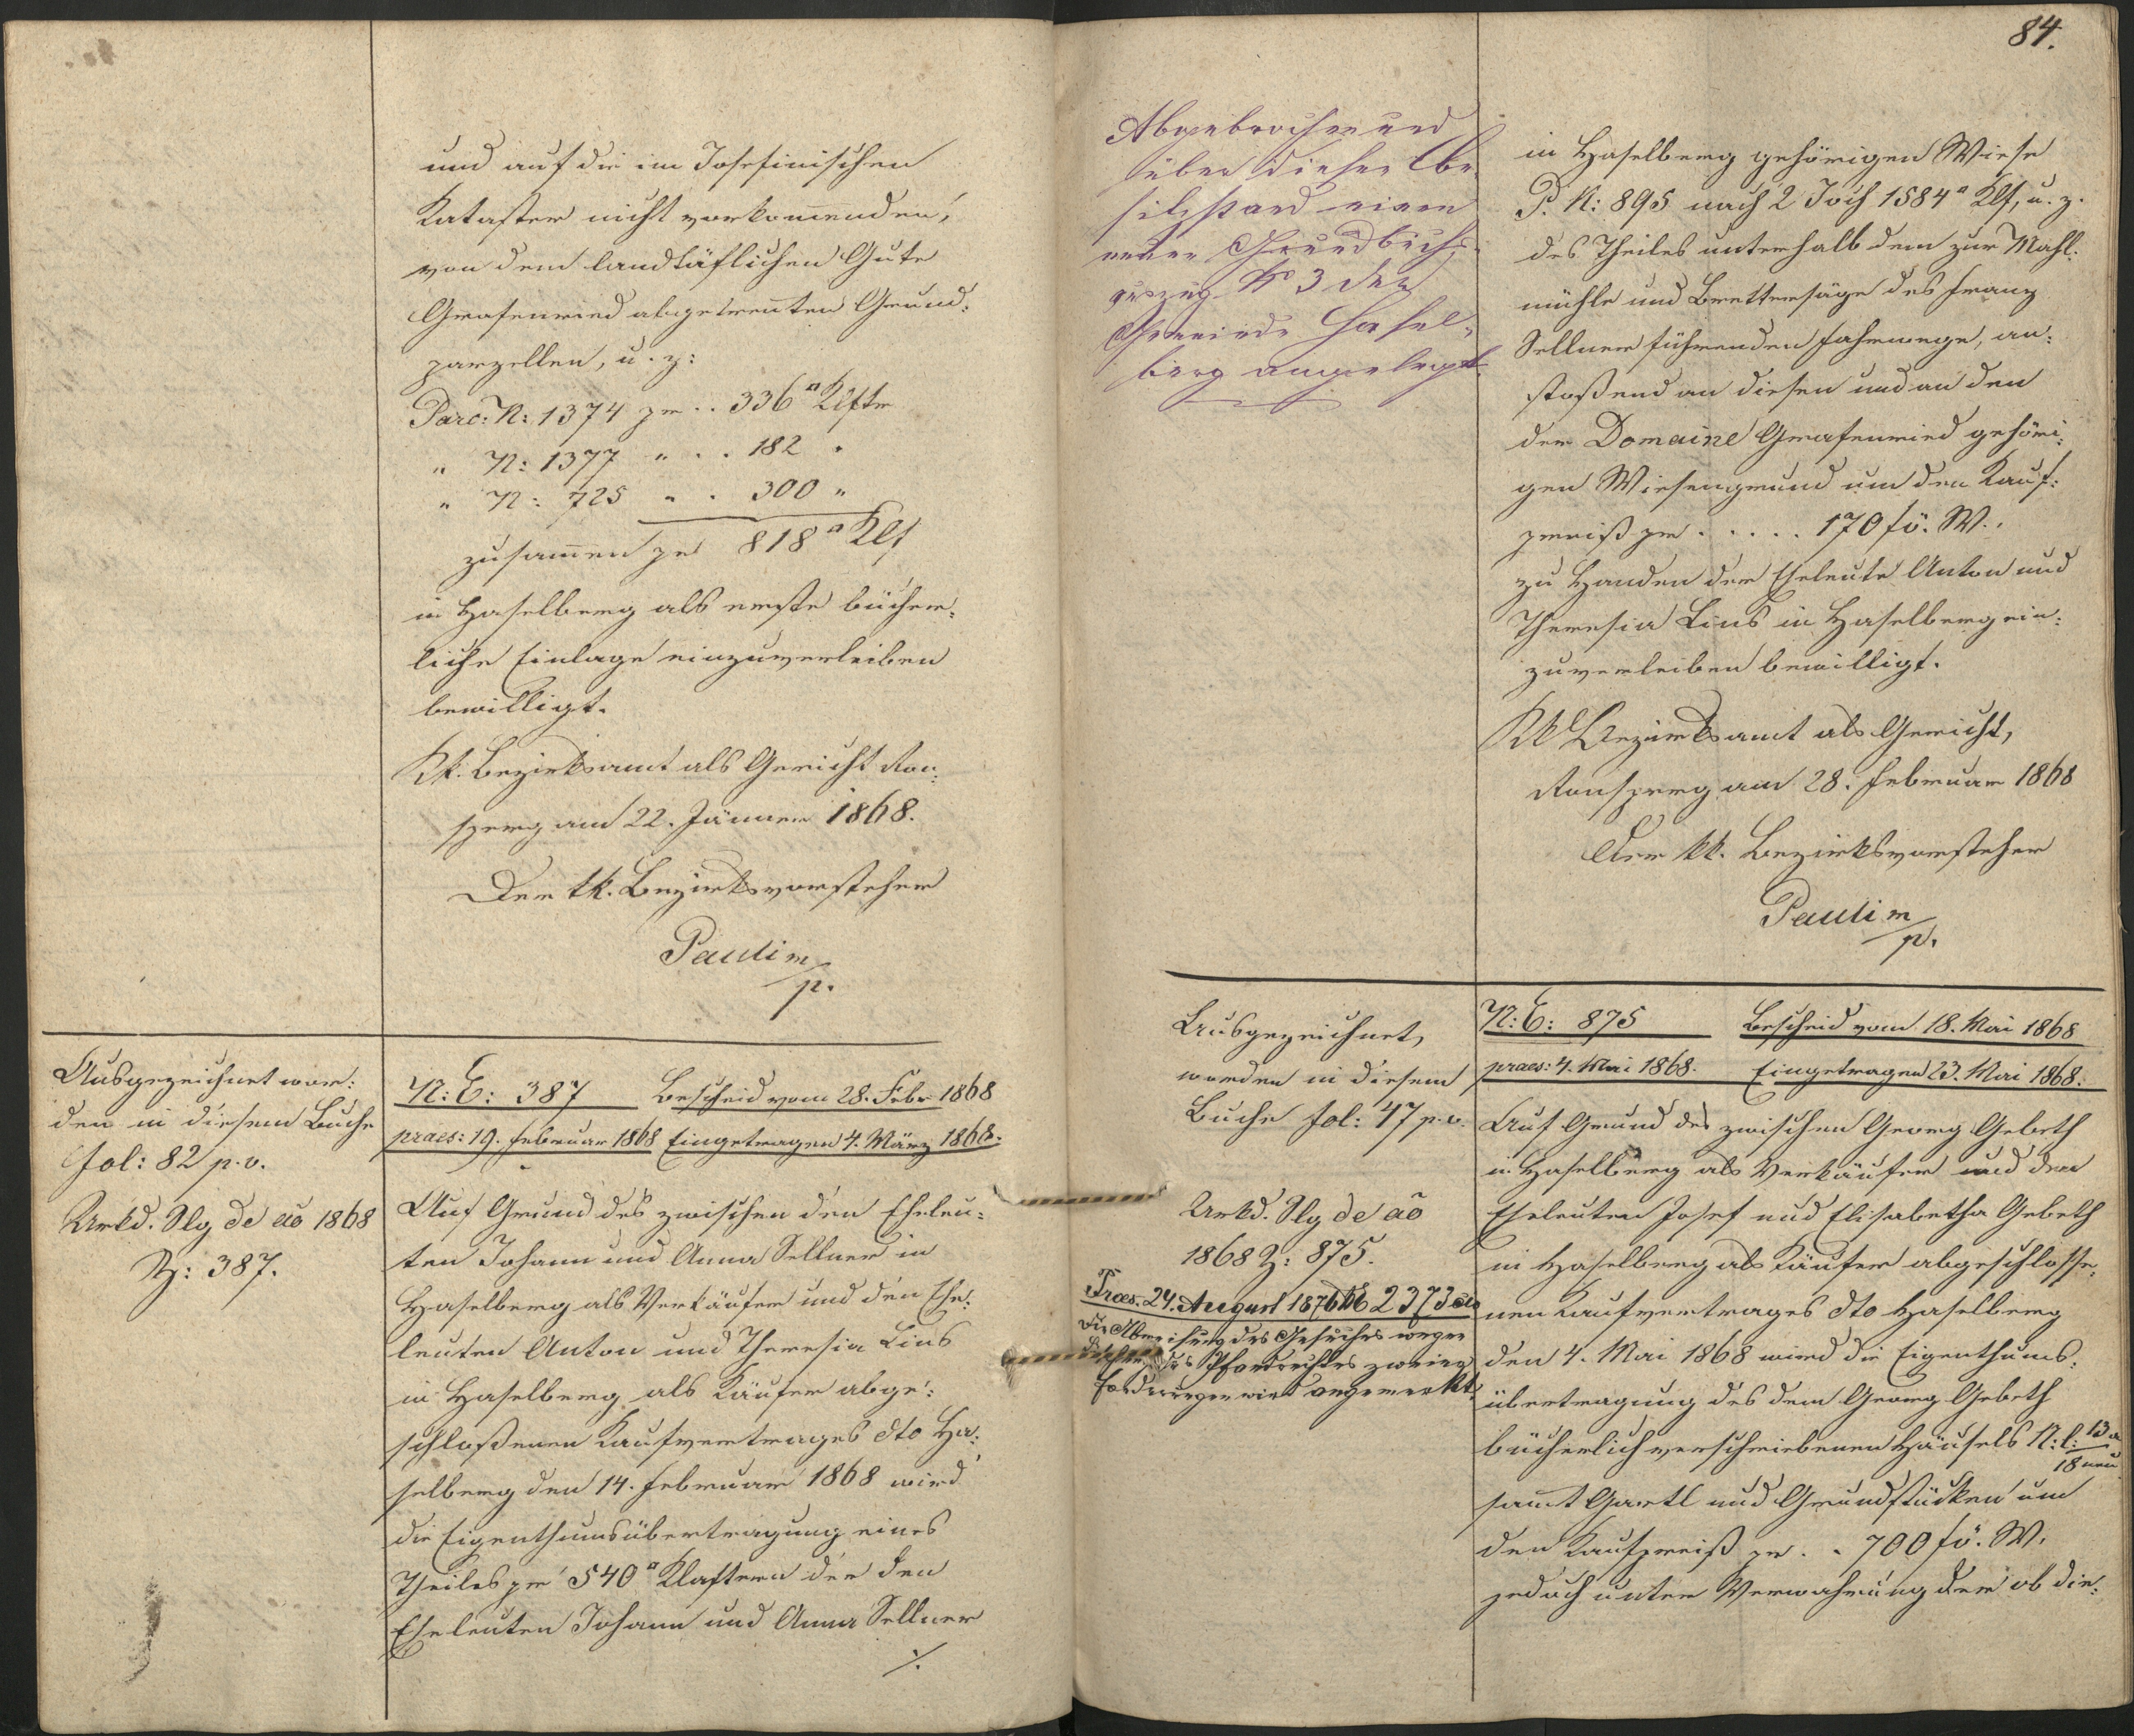 und auf die im Josefinischen
Kataster nicht vorkom̄enden,
von dem landtäflichen Gute
Grafenried abgetrenten Grund:
parzellen, u. z:
Parc: N: 1374 pr .. 336 □ Klftr
" N: 1377 " .. 182 "
" N: 725 " . 300 "
zusam̄en pr 818 □ Klf
in Haselberg als erste bücher:
liche Einlage einzuverleiben
bewilligt.
Kk. Bezirksamt als Gericht Ron:
sperg am 22. Jänner 1868.
Der kk. Bezirksvorsteher
Pauli m/p.
Ausgezeichnet wor:
den in diesem Buche
fol: 82 p. v.
Urkd. Slg de aō 1868
Z: 387.
N: E: 387 Bescheid vom 28. Febr 1868
praes: 19. Februar 1868 Eingetragen 4. März 1868.
Auf Grund des zwischen den Eheleu:
ten Johann und Anna Sellner in
Haselberg als Verkäufer und den Ehe:
leuten Anton und Theresia Lins
in Haselberg als Käufer abge:
schloßenen Kaufvertrages dto Ha:
selberg den 14. Februar 1868 wird
die Eigenthumsübertragung eines
Theiles pr 540 □ Klaftern der den
Eheleuten Johann und Anna Sellner
./.
84.
Abgebrochen und
über diesen Be-
sitzstand einen
neuen Grundbuchs-
auszug No 3 der
Gemeinde Hasel-
berg angelegt.
in Haselberg gehörigen Wiese
P. N: 895 nach 2 Joch 1584 □ Klf, u. z.
des Theiles unterhalb dem zur Mahl:
mühle und Brettersäge des Franz
Sellner führenden Fahrwege, an:
stoßend an diesen und an den
der Domaine Grafenried gehöri:
gen Wiesengrund um den Kauf:
preiß pr ..... 170 f ö. W.
zu Handen der Eheleute Anton und
Theresia Lins in Haselberg ein:
zuverleiben bewilligt.
KK Bezirksamt als Gericht,
Ronsperg am 28. Februar 1868
Der kk. Bezirksvorsteher
Pauli m/p.
Ausgezeichnet,
worden in diesem
Buche fol: 47 p. v.
Urkd. Slg de aō
1868 Z: 875.
Praes. 24. August 1876 No 2373 civ
Die Abweisung des Gesuches wegen
Löschung des Pfandrechtes zweier
Forderungen wird angemerkt.
N: E: 875 Bescheid vom 18. Mai 1868
praes: 4. Mai 1868. Eingetragen 23. Mai 1868.
Auf Grund des zwischen Georg Gebeth
in Haselberg als Verkäufer und den
Eheleuten Josef und Elisabetha Gebeth
in Haselberg als Käufer abgeschlosse:
nen Kaufvertrages dto Haselberg
den 4. Mai 1868 wird die Eigenthums:
übertragung des dem Georg Gebeth
bücherlich verschriebenen Häusels N: C: 13 a
18 neu
sam̄t Gartl und Grundstücken um
den Kaufpreiß pr .. 700 f ö. W.
jedoch unter Verwahrung der ob die: